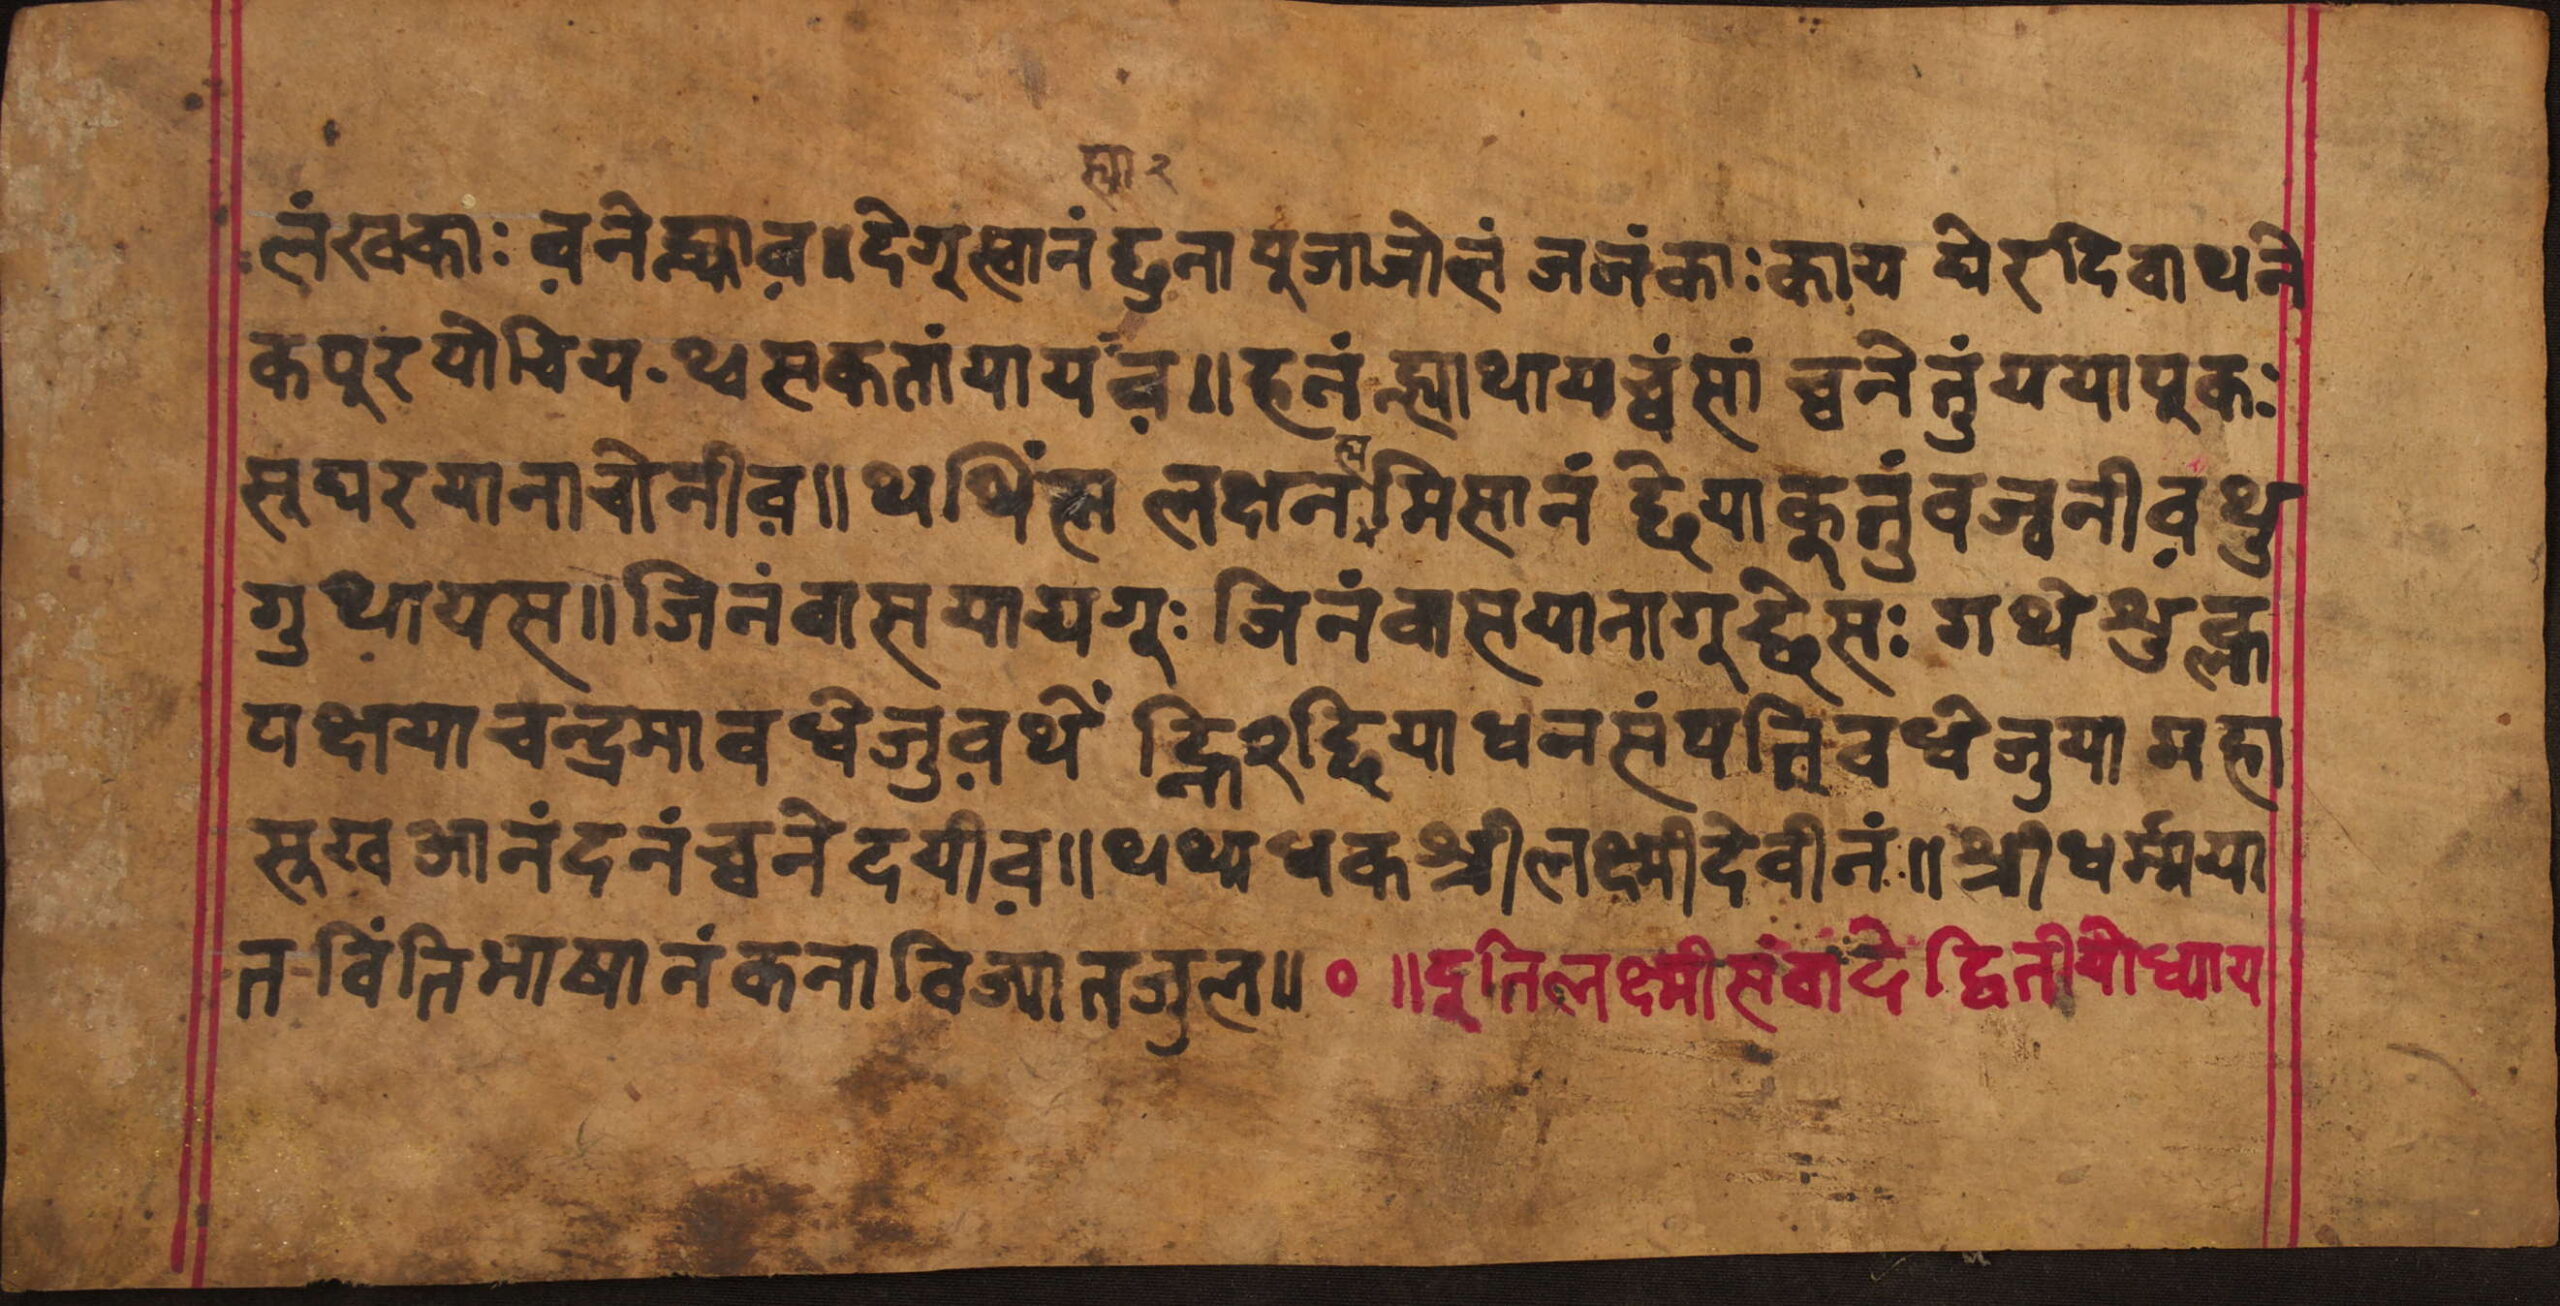 ह्या २
लंखकाः व़नेह्माव़॥देगुस्वानंछुना पूजाजोलं जजंकाःकाय घेरदिवाथने
कपूरयोचिय॰थ्वसकतांयायव़॥हनं ह्माथायच्वंसां च्वनेतुंययापूकः
सूघरयानाचोनीव़॥थथिंह्म लक्षनह्म मिसानं छेयाकूतुंवज्वनीव़थु
गुथायस॥जिनंवासयायगूः जिनंवासयानागूछेसः गथे शुक्ल
पक्षयाचन्द्रमावध्वेजुव़थें ह्नि२छियाधनसंपत्तिवध्वेजुया महा
सूखआनंदनंच्वनेदयीव़॥थथ्यधकश्रीलक्ष्मीदेवीनं॥श्रीधर्म्मया
त विंतिभाषानंकनाविज्यातजुल॥ ० ॥इतिलक्ष्मीसंवादे द्वितीयोध्याय